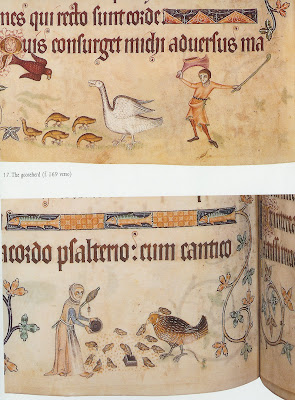 nes qui recto sunt corde
Quis consurget michi adversus ma
17. The gooseherd (f. 169 verso)
acordo psalterio: cum cantico